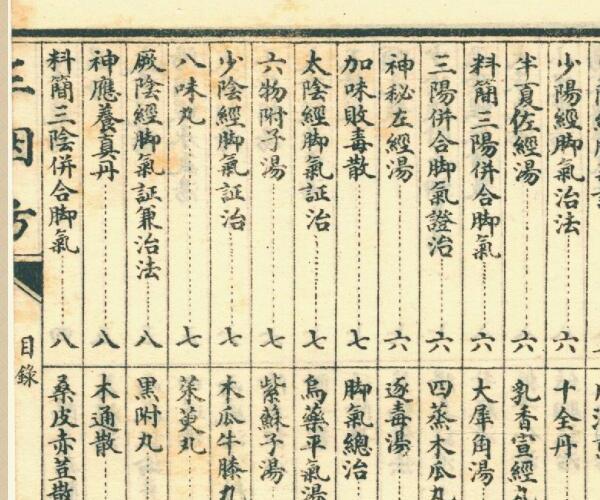 少陽經脚氣治法……六
半夏佐經湯……六
料簡三陽併合脚氣……六
三陽併合脚氣證治……六
神秘左經湯……六
加味敗毒散……七
太陰經脚氣証治……七
六物附子湯……七
少陰經脚氣証治……七
八味丸……七
厥陰經脚氣証兼治法……八
神應養真丹……八
料簡三陰併合脚氣……八
十全丹
乳香宣經丸
大犀角湯
四蒸木瓜丸
逐毒湯
脚氣總治
烏藥平氣湯
紫蘇子湯
木瓜牛膝丸
茱萸丸
黑附丸
木通散
桑皮赤荳散
三因方
目錄